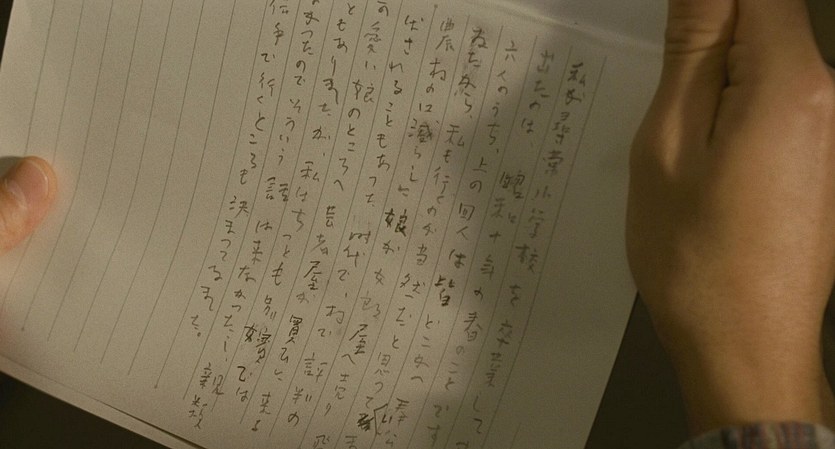 私が尋常小学校を卒業して
出たのは、昭和十年の春のことです
六人のうち、上の四人は皆どこかへ奉公
たから、私も行くのが当然だと思って
農村の口減らしに娘が女郎屋へ売り
ばされることもあった時代で、村で評判の
愛い娘のところへ芸者屋が買いに来る
ともありましたが、私はちっとも別嬪では
なかったのでそういう話は来なかったし、親類
伝手で行くところも決まってました。